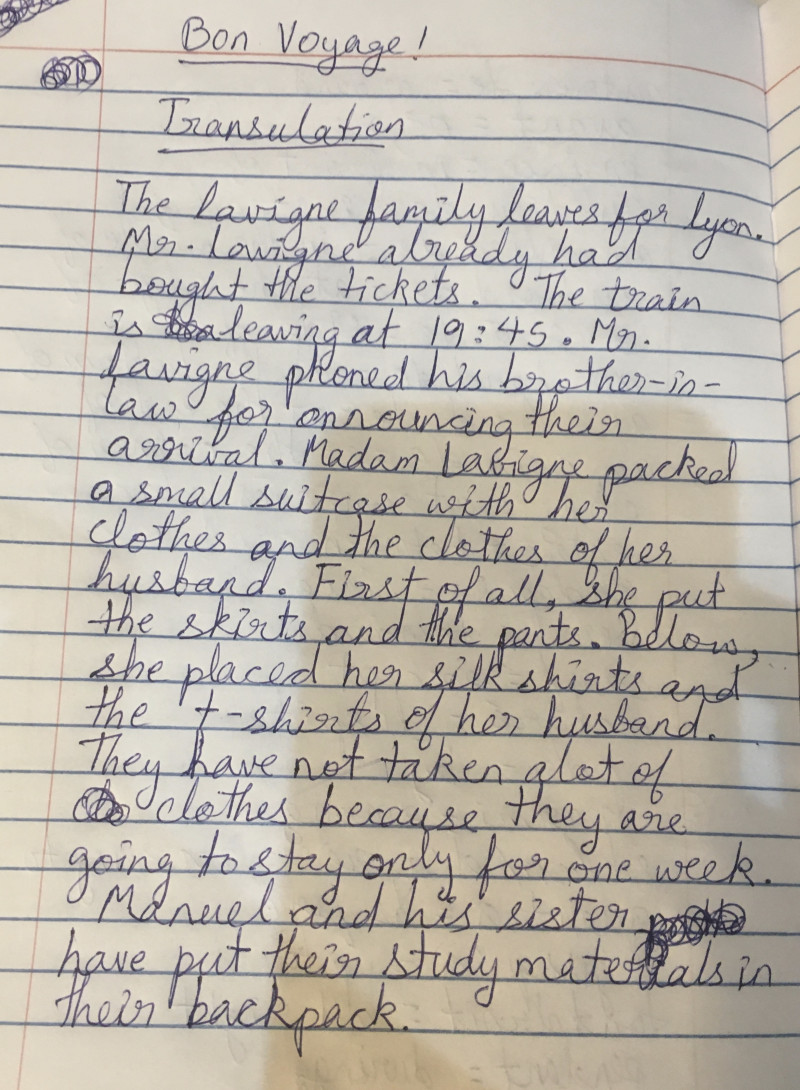 Bon Voyage!
Transulation
The Lavigne family leaves for lyon.
Mr. Lavigne already had
bought the tickets. The train
is leaving at 19:45. Mr.
Lavigne phoned his brother-in-
law for announcing their
arrival. Madam Lavigne packed
a small suitcase with her
clothes and the clothes of her
husband. First of all, she put
the skirts and the pants. Below,
she placed her silk shirts and
the t-shirts of her husband.
They have not taken alot of
clothes because they are
going to stay only for one week.
Manuel and his sister
have put their study materials in
their backpack.